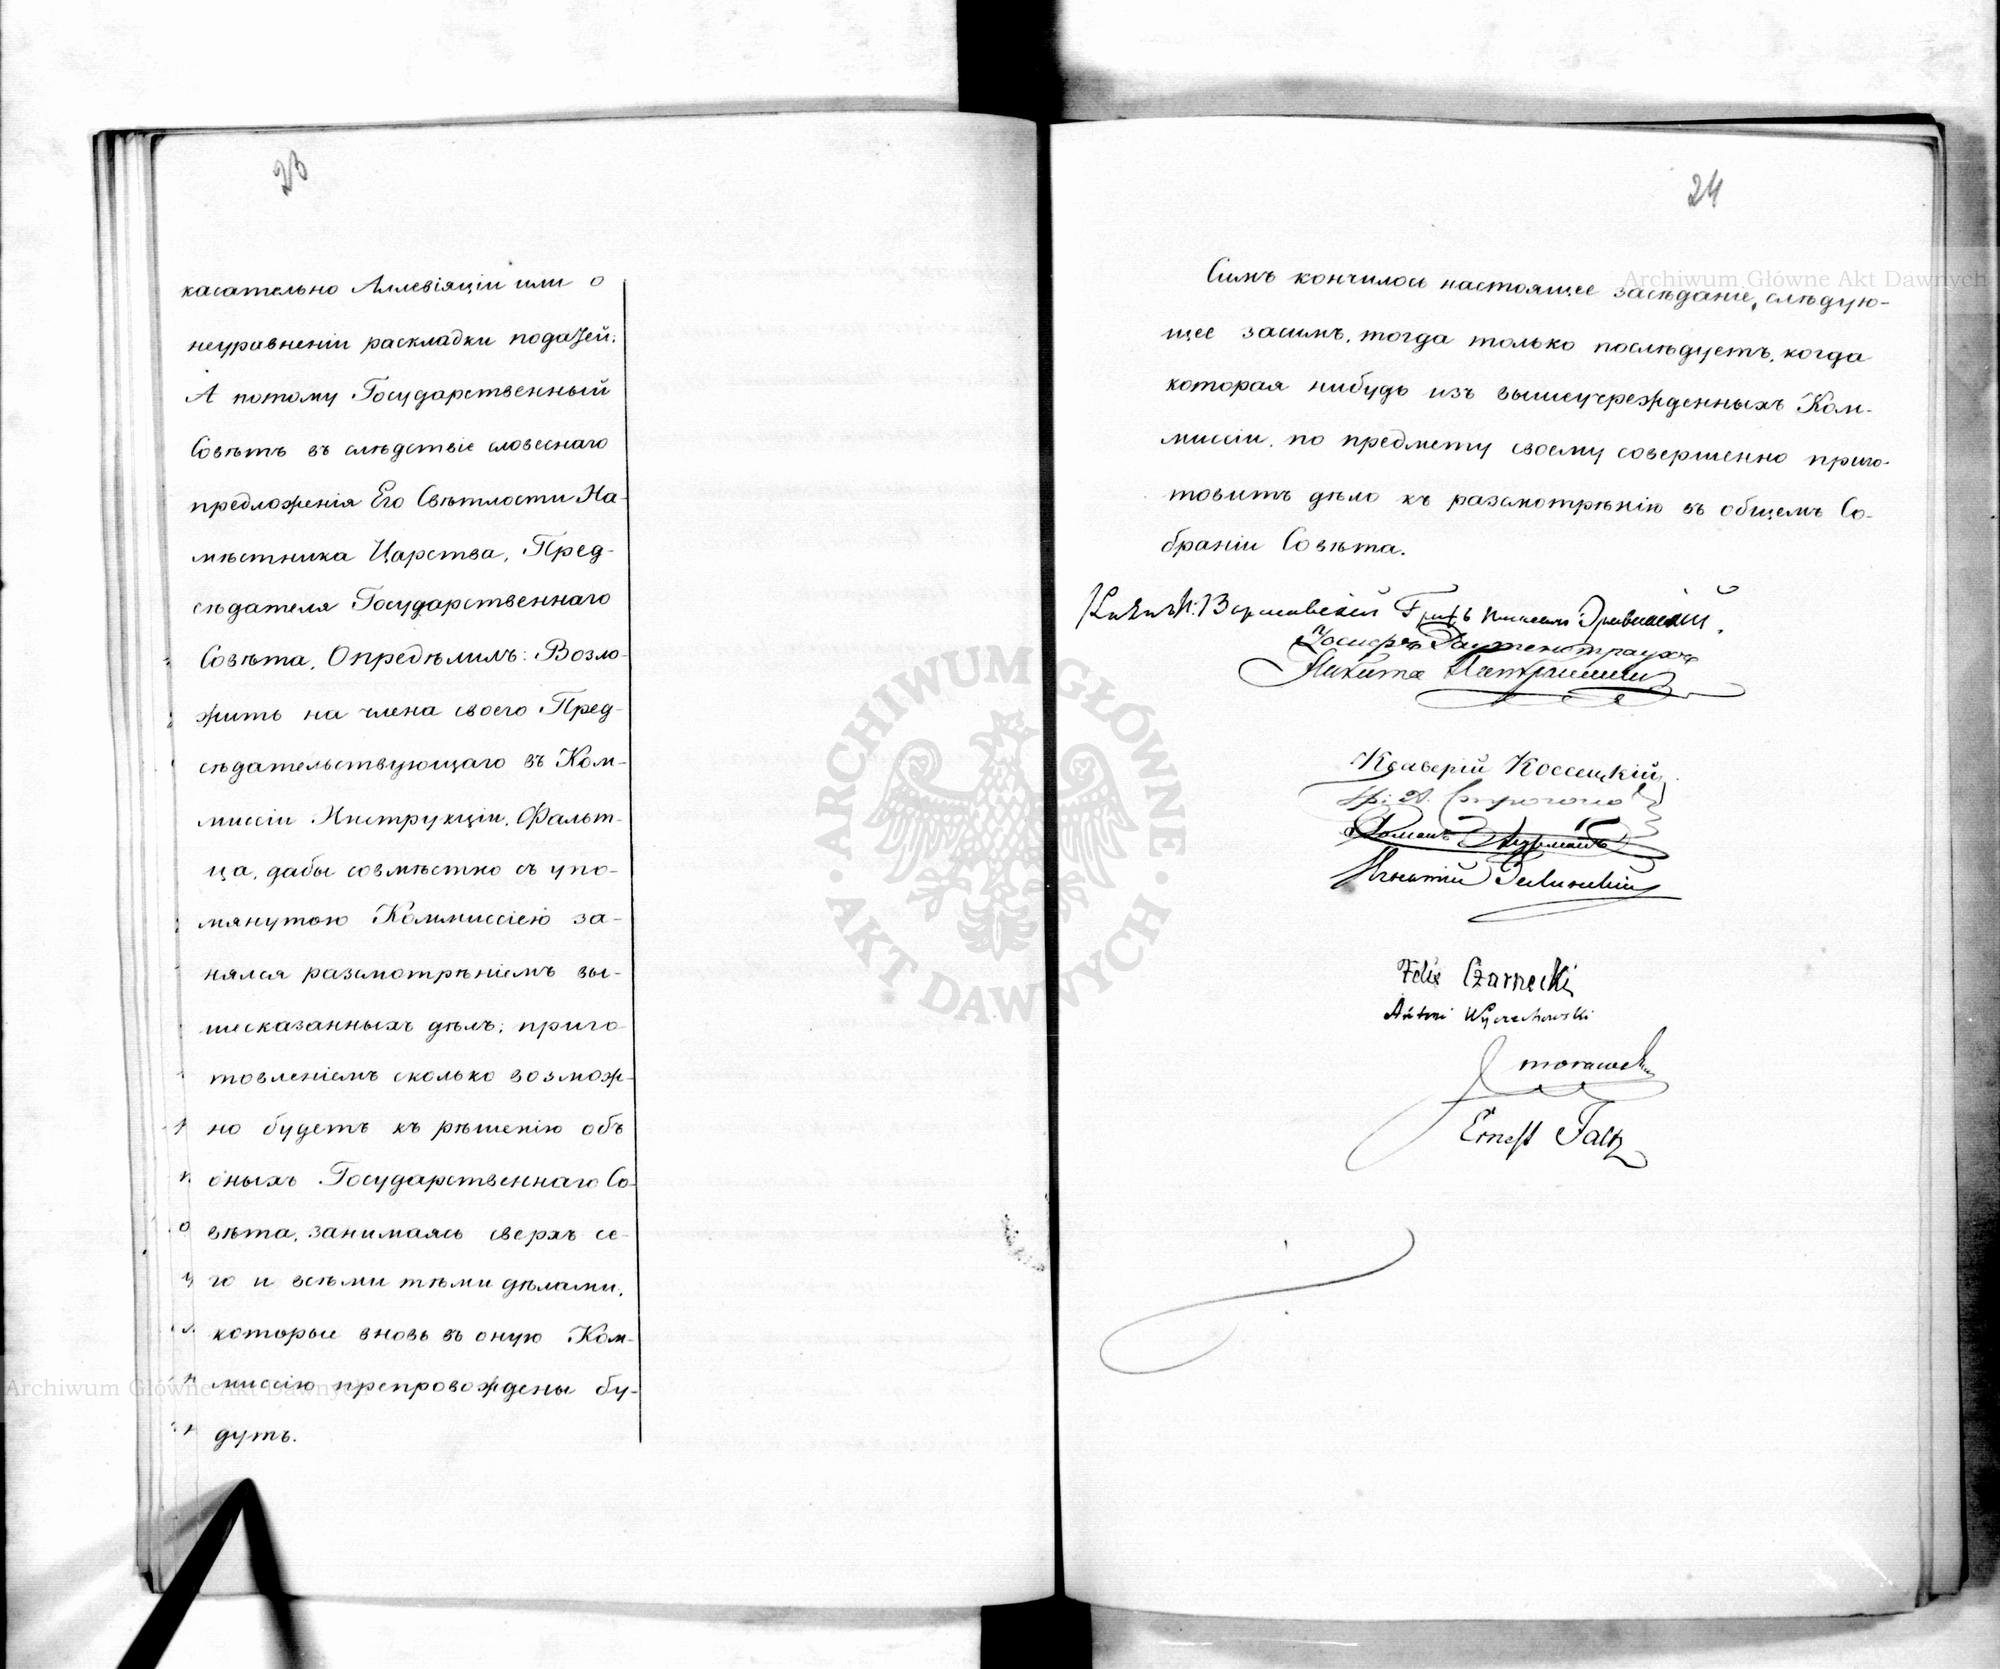 23
касательно Аллевіяціи или о
неуравненіи раскладки подачей;
А потому Государственный
Совѣтъ въ слѣдствіе словеснаго
предложенія Его Свѣтлости На-
мѣстника Царства, Пред-
сѣдателя Государственнаго
Совѣта, Опредѣлилъ: Возло-
жить на члена своего Пред-
сѣдательствующаго въ Ком-
миссіи Инструкціи, Фальт-
ца, дабы совмѣстно съ упо-
мянутою Коммиссіею за-
нялся разсмотрѣніемъ вы-
шесказанныхъ дѣлъ; приго-
товленіемъ сколько возмож-
но будетъ къ рѣшенію объ
оныхъ Государственнаго Со-
вѣта, занимаясь сверхъ се-
го и всѣми тѣми дѣлами,
которые вновь въ оную Ком-
миссію препровождены бу-
дутъ.
24
Симъ кончилось настоящее засѣданіе, слѣдую-
щее засимъ, тогда только послѣдуетъ, когда
которая нибудь изъ вышеучрежденныхъ Ком-
миссіи, по предмету своему совершенно приго-
товитъ дѣло къ разсмотрѣнію въ общемъ Со-
браніи Совѣта.
Варшавскій Графъ Эриванскій.
Іосифъ Раутенштраухъ
Никита
Ксаверій Коссецкій
А. Строгоно
Романъ
Игнатій
Felix Czarnecki
Antoni Wyczechowski
Morawski
Ernest Faltz
Archiwum Główne Akt Dawnych
Archiwum Główne Akt Dawnych
ARCHIWUM GŁÓWNE
AKT DAWNYCH